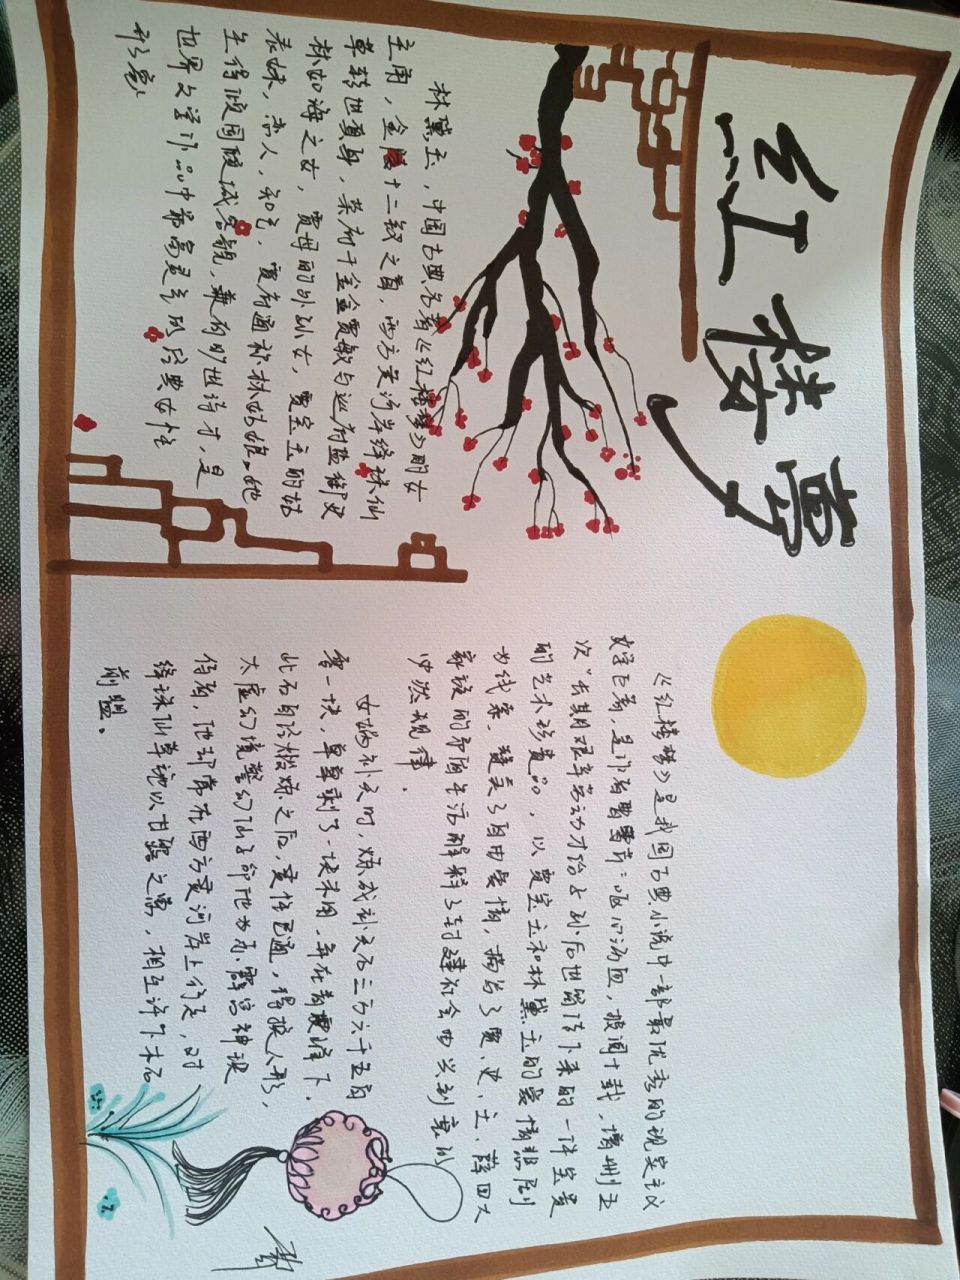 红楼梦
林黛玉，中国古典名著《红楼梦》的女
主角，金陵十二钗之首，西方灵河岸绛珠仙
草转世真身，荣府千金贾敏与巡盐御史
林如海之女，贾母的外孙女，贾宝玉的姑
表妹，恋人，知己，贾府通称林姑娘。她
生得倾国倾城容貌，兼有旷世诗才，是
世界文学作品中最富灵气的经典女性
形象
《红楼梦》是我国古典小说中一部最优秀的现实主义
文学巨著，是作者曹雪芹"呕心沥血，披阅十载，增删五
次"长期艰辛劳动才给予到后世留传下来的一件宝贵
的艺术珍贵品，以贾宝玉和林黛玉的爱情悲剧
为线索，赞美了自由爱情，揭露了贾、史、王、薛四大
家族的腐朽生活解释了封建社会由兴到衰的
必然规律．
女娲补天时，炼成补天石三万六千五百
零一块，单单剩了一块未用，弃在青埂峰下．
此石自经煅炼之后，灵性已通，得换人形，
太虚幻境警幻仙子命他为赤霞宫神瑛
侍者，他却常在西方灵河岸上行走，对
绛珠仙草施以甘露之惠，相互许下木石
前盟。